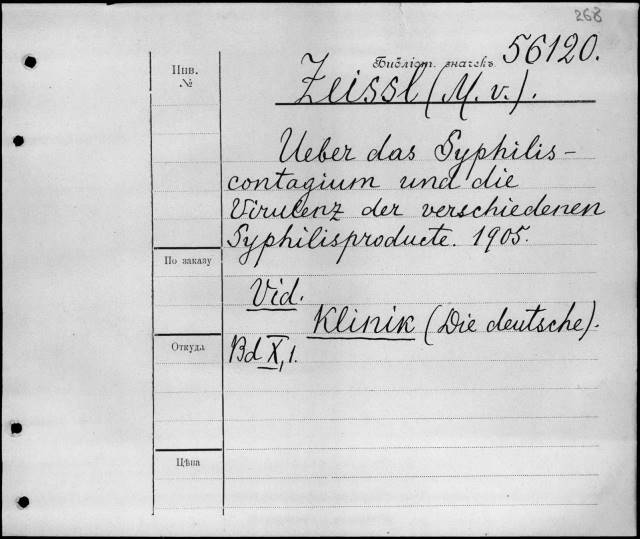 268
Библіот. значекъ 56120.
Инв.
№
Zeissl (M. v.).
Ueber das Syphilis-
contagium und die
Virulenz der verschiedenen
Syphilisproducte. 1905.
По заказу
Vid.
Klinik (Die deutsche).
Откуда
Bd X, 1.
Цѣна